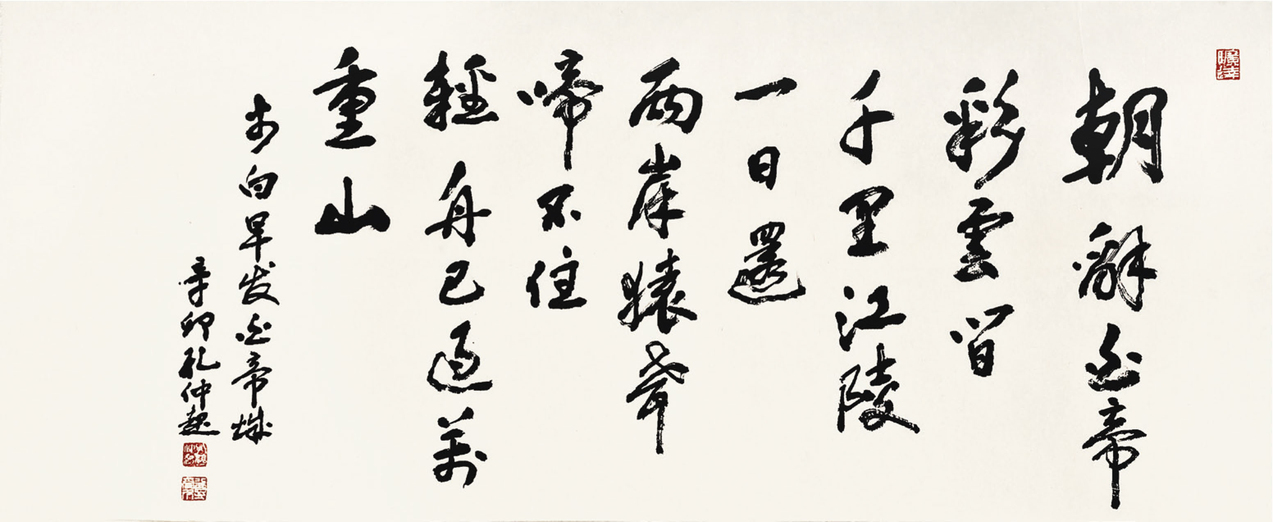 朝辭白帝
彩雲間
千里江陵
一日還
兩岸猿聲
啼不住
輕舟已過萬
重山
李白早发白帝城
辛卯孔仲起